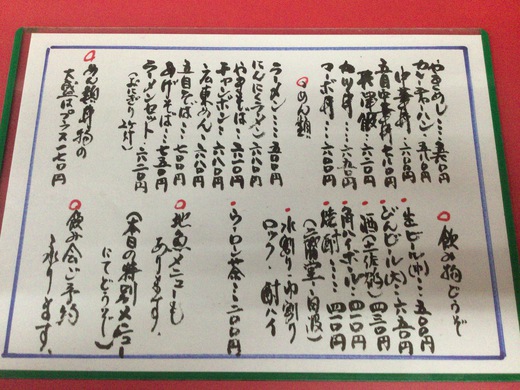 やきめし……五五〇円
カレーチャーハン…五八〇円
中華丼……六三〇円
五目中華丼…七八〇円
天津飯…六二〇円
カツ丼……六九〇円
マーボ丼…六三〇円
めん類
ラーメン……五〇〇円
にんにくラーメン
やきそば…五六〇円
チャンポン…六八〇円
広東めん…六八〇円
五目そば…七〇〇円
あげそば…七五〇円
ラーメンセット…六二〇円
(おにぎり2ケ付)
めん類丼物の
大盛はプラス一七〇円
飲み物どうぞ
生ビール(中)…五〇〇円
びんビール(大)…六五〇円
酒(二級)…四三〇円
角ハイボール…四一〇円
焼酎……四一〇円
(二階堂・白波)
水割り・お湯割り
ロック・酎ハイ
ウーロン茶……二一〇円
地魚メニューも
あります。
(本日の特別メニュー
にてどうぞ)
飲み会ご予約
承ります。